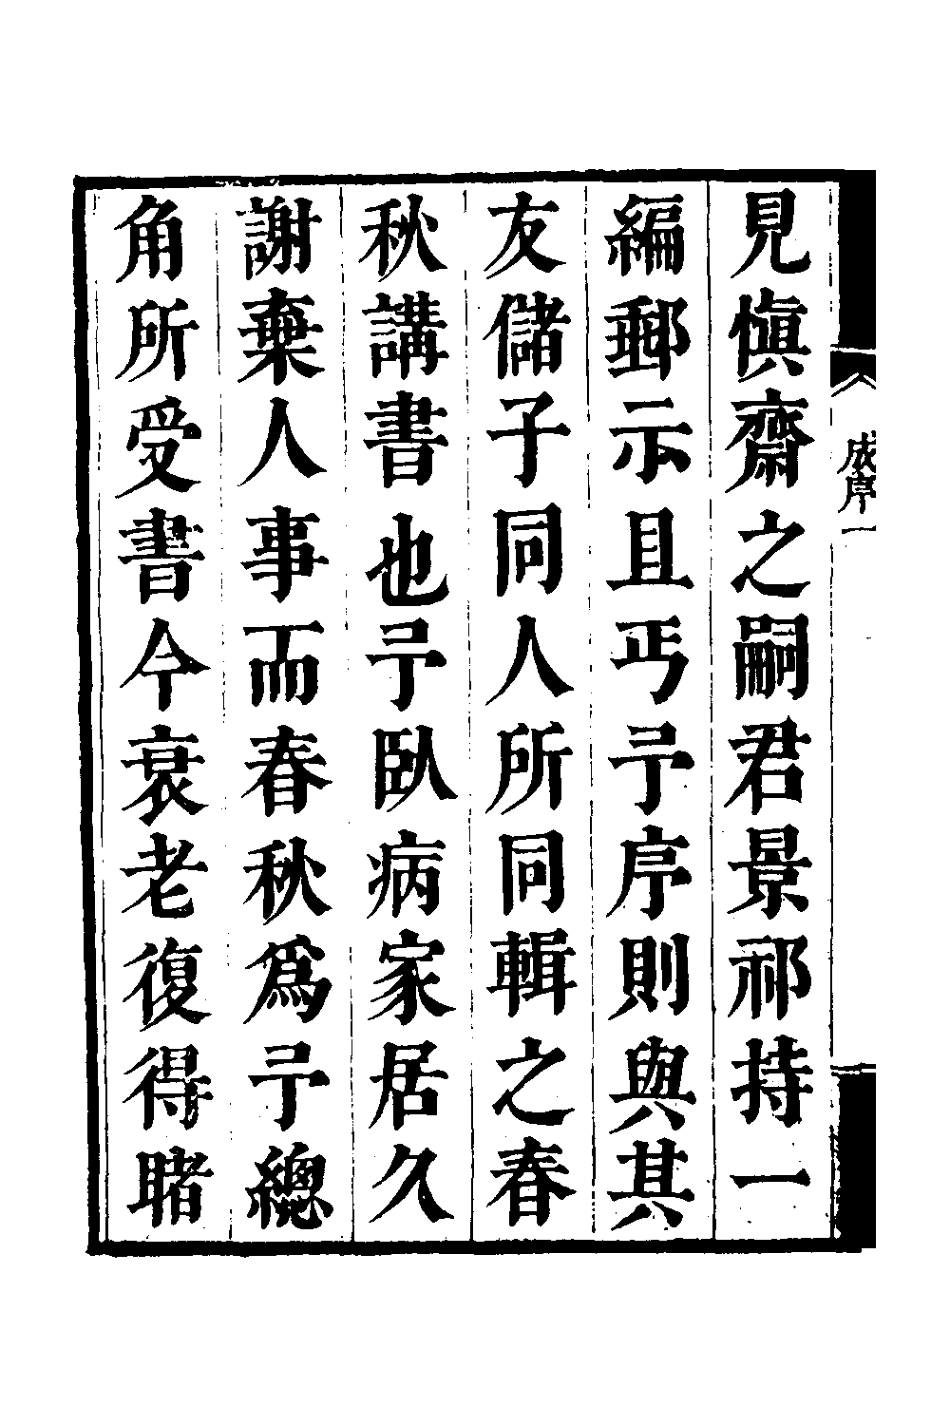 成序 一
見慎齋之嗣君景祁持一
編郵示且丐予序則與其
友儲子同人所同輯之春
秋講書也予臥病家居久
謝棄人事而春秋爲予總
角所受書今衰老復得睹